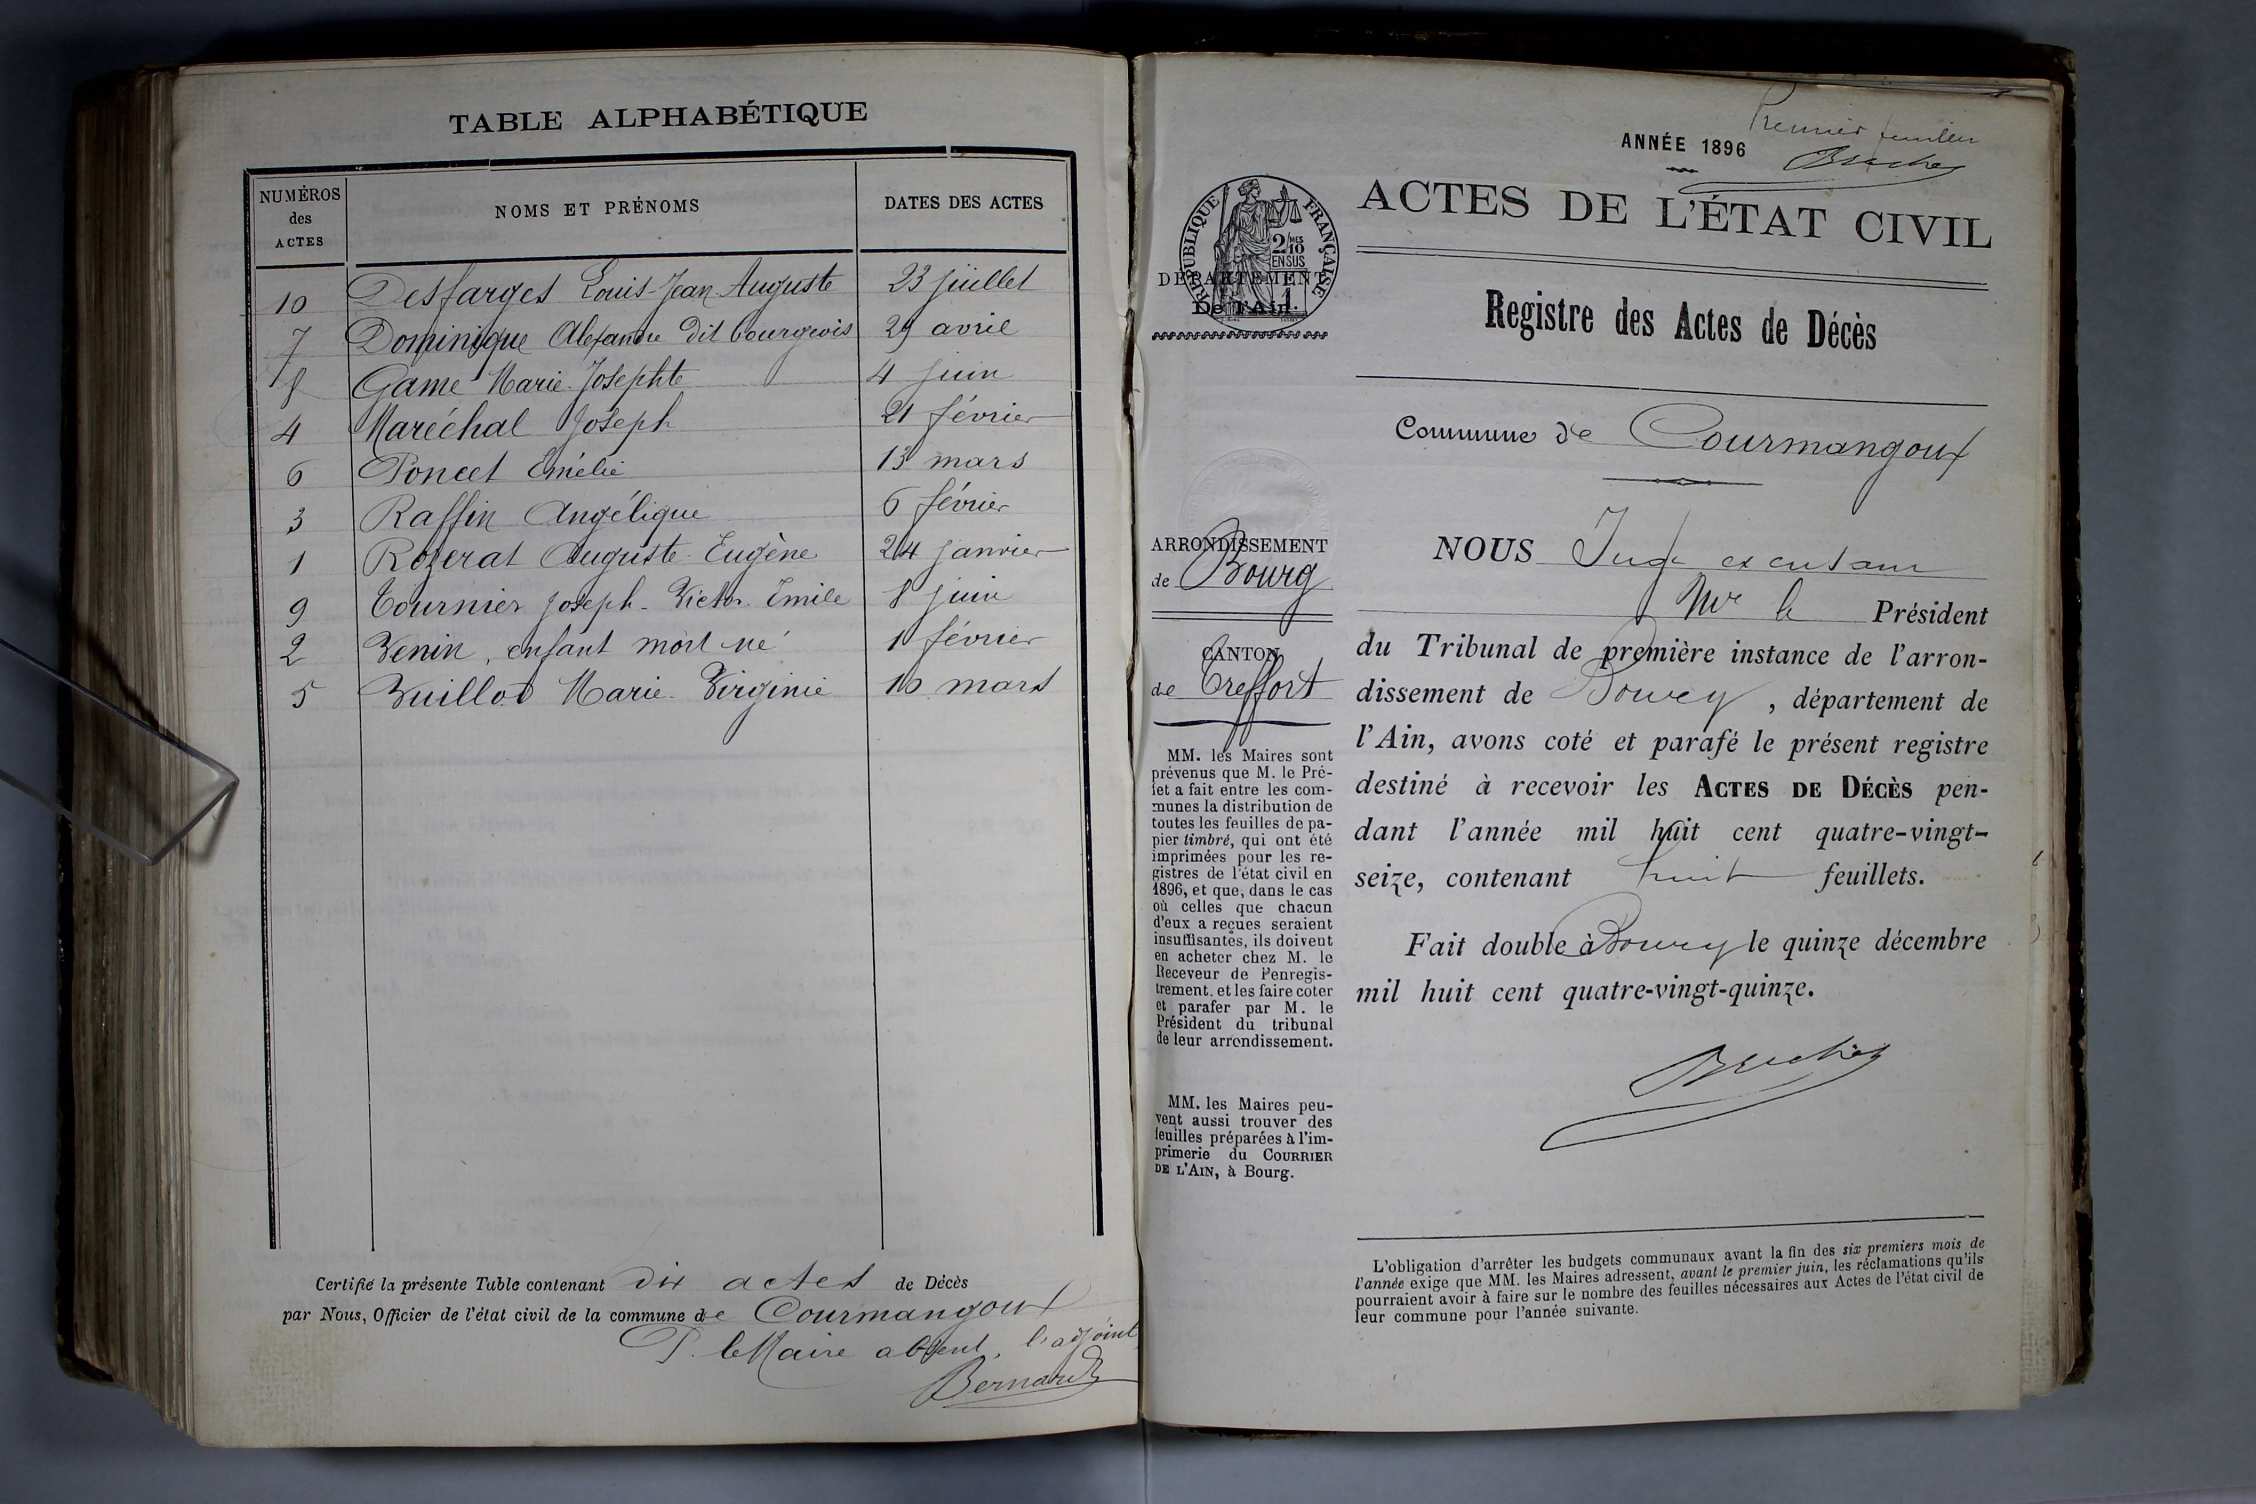 TABLE ALPHABÉTIQUE
NUMÉROS des ACTES
NOMS ET PRÉNOMS
DATES DES ACTES
10 Desfarges Louis-Jean-Auguste 23 juillet
7 Dominique Alexandre dit bourgeois 29 avril
8 Game Marie-Josephte 4 juin
4 Maréchal Joseph 21 février
6 Poncet Emélie 13 mars
3 Raffin Angélique 6 février
1 Rozerat Auguste-Eugène 24 janvier
9 Tournier Joseph-Victor-Emile 8 juin
2 Venin, enfant mort-né 1 février
5 Vuillod Marie-Virginie 10 mars
Certifié la présente Table contenant dix actes de Décès
par Nous, Officier de l'état civil de la commune de Courmangoux
P. le Maire absent, l'adjoint
Bernard
Premier feuillet
ANNÉE 1896
ACTES DE L'ÉTAT CIVIL
RÉPUBLIQUE FRANÇAISE
2/10 MES
EN SUS
1
DÉPARTEMENT
De l'Ain.
Registre des Actes de Décès
Commune de Courmangoux
ARRONDISSEMENT
de Bourg
CANTON
de Treffort
MM. les Maires sont
prévenus que M. le Pré-
fet a fait entre les com-
munes la distribution de
toutes les feuilles de pa-
pier timbré, qui ont été
imprimées pour les re-
gistres de l'état civil en
1896, et que, dans le cas
où celles que chacun
d'eux a reçues seraient
insuffisantes, ils doivent
en acheter chez M. le
Receveur de l'enregis-
trement, et les faire coter
et parafer par M. le
Président du tribunal
de leur arrondissement.
MM. les Maires peu-
vent aussi trouver des
feuilles préparées à l'im-
primerie du COURRIER
DE L'AIN, à Bourg.
NOUS Juge
Mr le Président
du Tribunal de première instance de l'arron-
dissement de Bourg, département de
l'Ain, avons coté et parafé le présent registre
destiné à recevoir les ACTES DE DÉCÈS pen-
dant l'année mil huit cent quatre-vingt-
seize, contenant huit feuillets.
Fait double à Bourg le quinze décembre
mil huit cent quatre-vingt-quinze.
L'obligation d'arrêter les budgets communaux avant la fin des six premiers mois de
l'année exige que MM. les Maires adressent, avant le premier juin, les réclamations qu'ils
pourraient avoir à faire sur le nombre des feuilles nécessaires aux Actes de l'état civil de
leur commune pour l'année suivante.